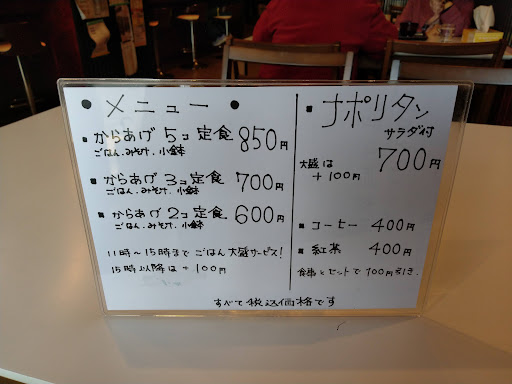 ・メニュー・
・からあげ5コ定食 850円
ごはん、みそ汁、小鉢
・からあげ3コ定食 700円
ごはん、みそ汁、小鉢
・からあげ2コ定食 600円
ごはん、みそ汁、小鉢
11時〜15時まで ごはん大盛サービス!
15時以降は +100円
・ナポリタン
サラダ付
700円
大盛は
+100円
・コーヒー 400円
・紅茶 400円
食事とセットで100円引き.
すべて税込価格です